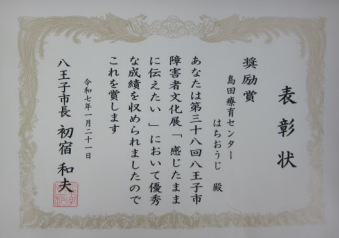 表彰状
奨励賞
島田療育センター
はちおうじ 殿
あなたは第三十八回八王子市
障害者文化展「感じたまま
に伝えたい」において優秀
な成績を収められましたので
これを賞します
令和七年一月二十一日
八王子市長 初宿 和夫